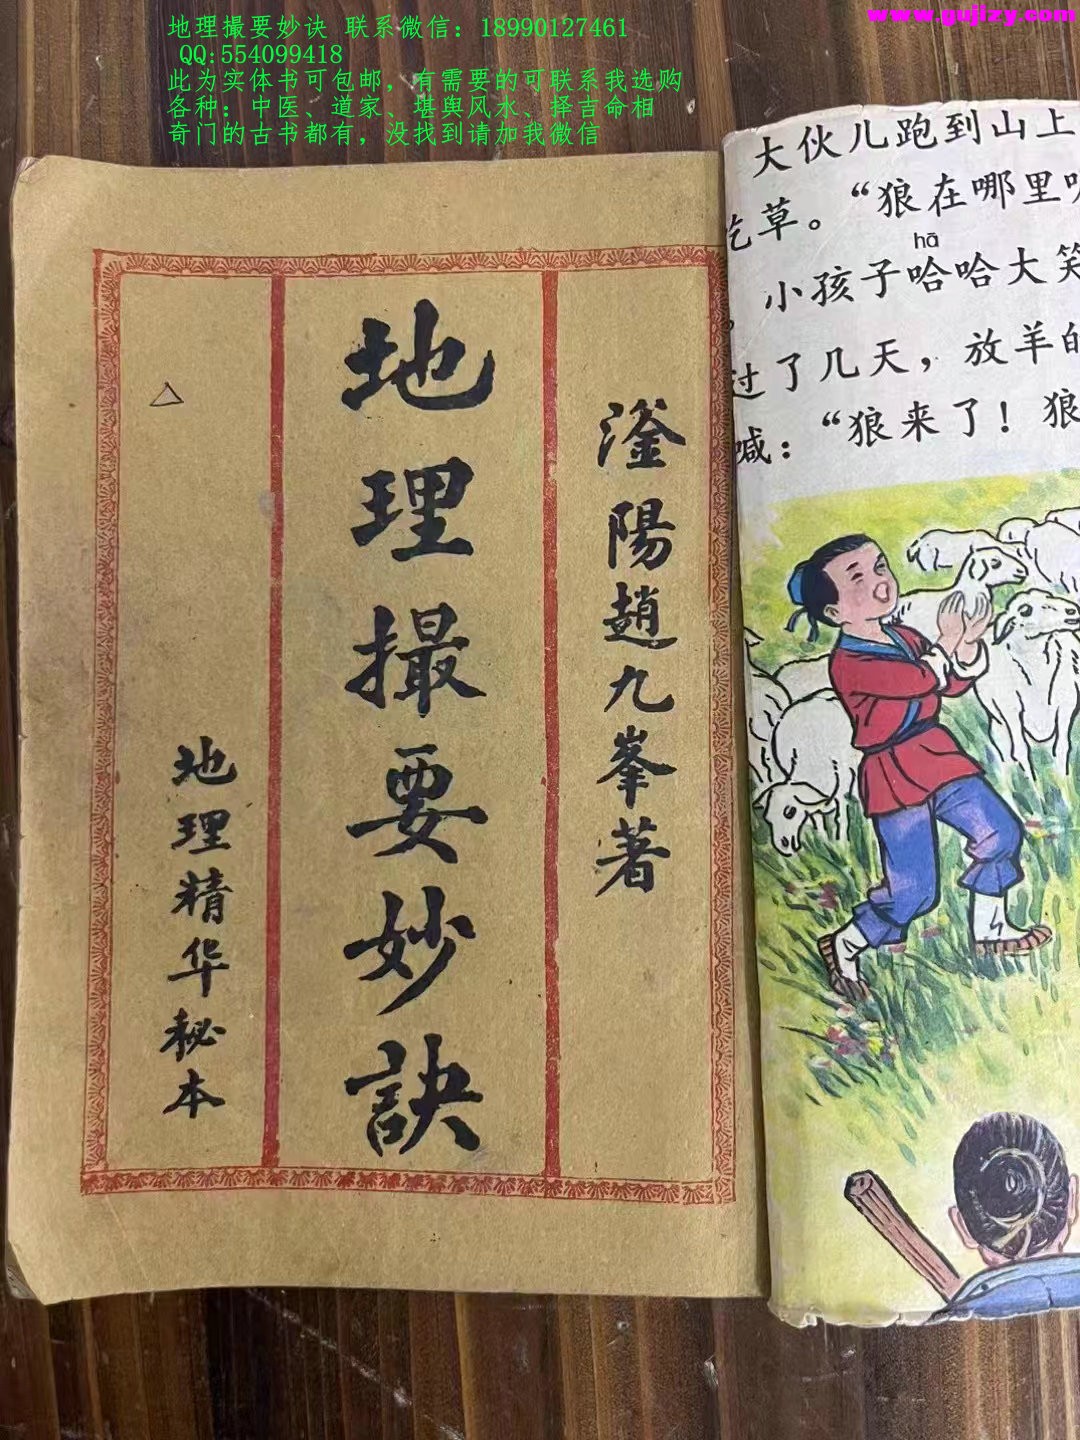 地理撮要妙诀 联系微信：18990127461
QQ:554099418
此为实体书可包邮，有需要的可联系我选购
各种：中医、道家、堪舆风水、择吉命相
奇门的古书都有，没找到请加我微信
www.gujizy.com
滏陽趙九峯著
地理撮要妙訣
地理精华秘本
大伙儿跑到山上
吃草。“狼在哪里
hā
，小孩子哈哈大笑
过了几天，放羊的
喊：“狼来了！狼